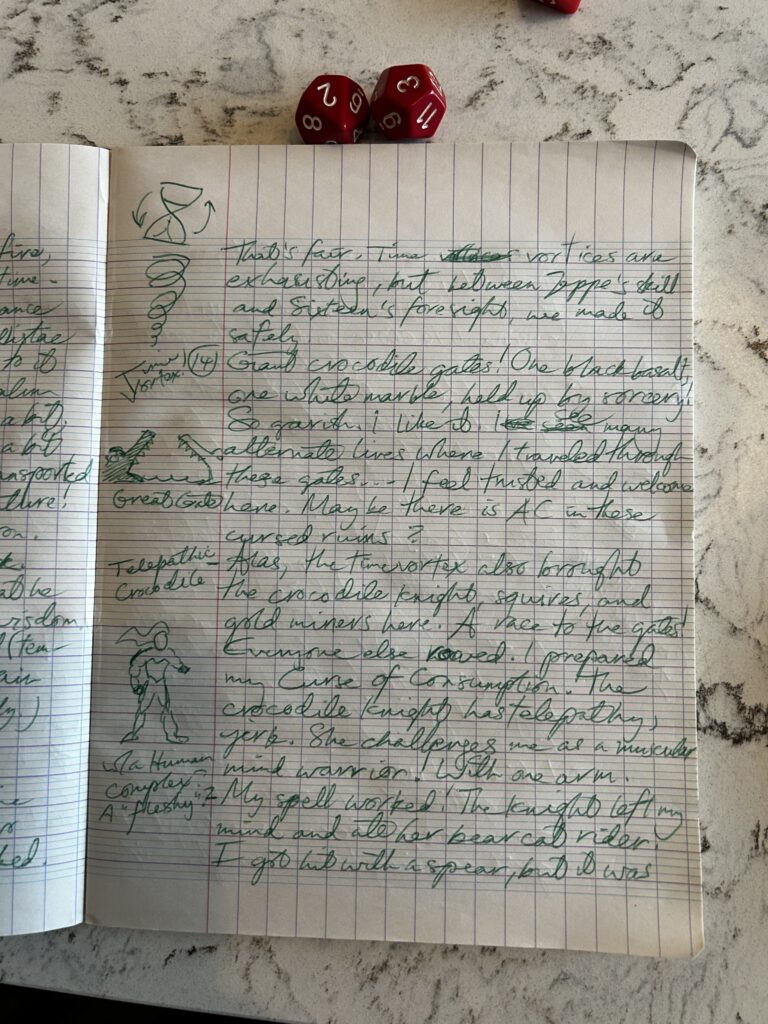 2
8
9
3
11
9
fire,
time.
ance
listae
to it
alim
a bit.
a bit
ansported
ture!
on.
k.
at he
risdom.
(tem-
ain
ly.)
ne
or
ked.
That's fair. Time vortices are
exhasisting, but between Zeppe's skill
and Sixteen's foresight, we made it
safely
Time Vortex! (14)
Giant crocodile gates! One black basalt,
one white marble, held up by sorcery!
So garish. I like it. I see many
alternate lives where I traveled through
these gates... I feel trusted and welcome
Great Gate
here. Maybe there is AC in these
cursed ruins?
Telepathic
Crocodile
Alas, the time vortex also brought
the crocodile knight, squires, and
gold miners here. A race to the gates!
Everyone else rowed. I prepared
my Curse of Consumption. The
crocodile knight has telepathy,
jerk. She challenges me as a muscular
mind warrior! With one arm.
w/a Human
Complex
A "fleshy"?
My spell worked! The knight left my
mind and ate her bearcat rider!
I got hit with a spear, but it was